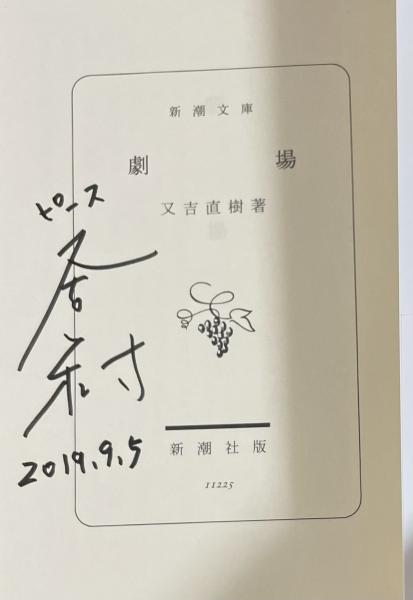 新潮文庫
劇場
又吉直樹著
新潮社版
11225
ピース
又吉
直樹
2019.9.5